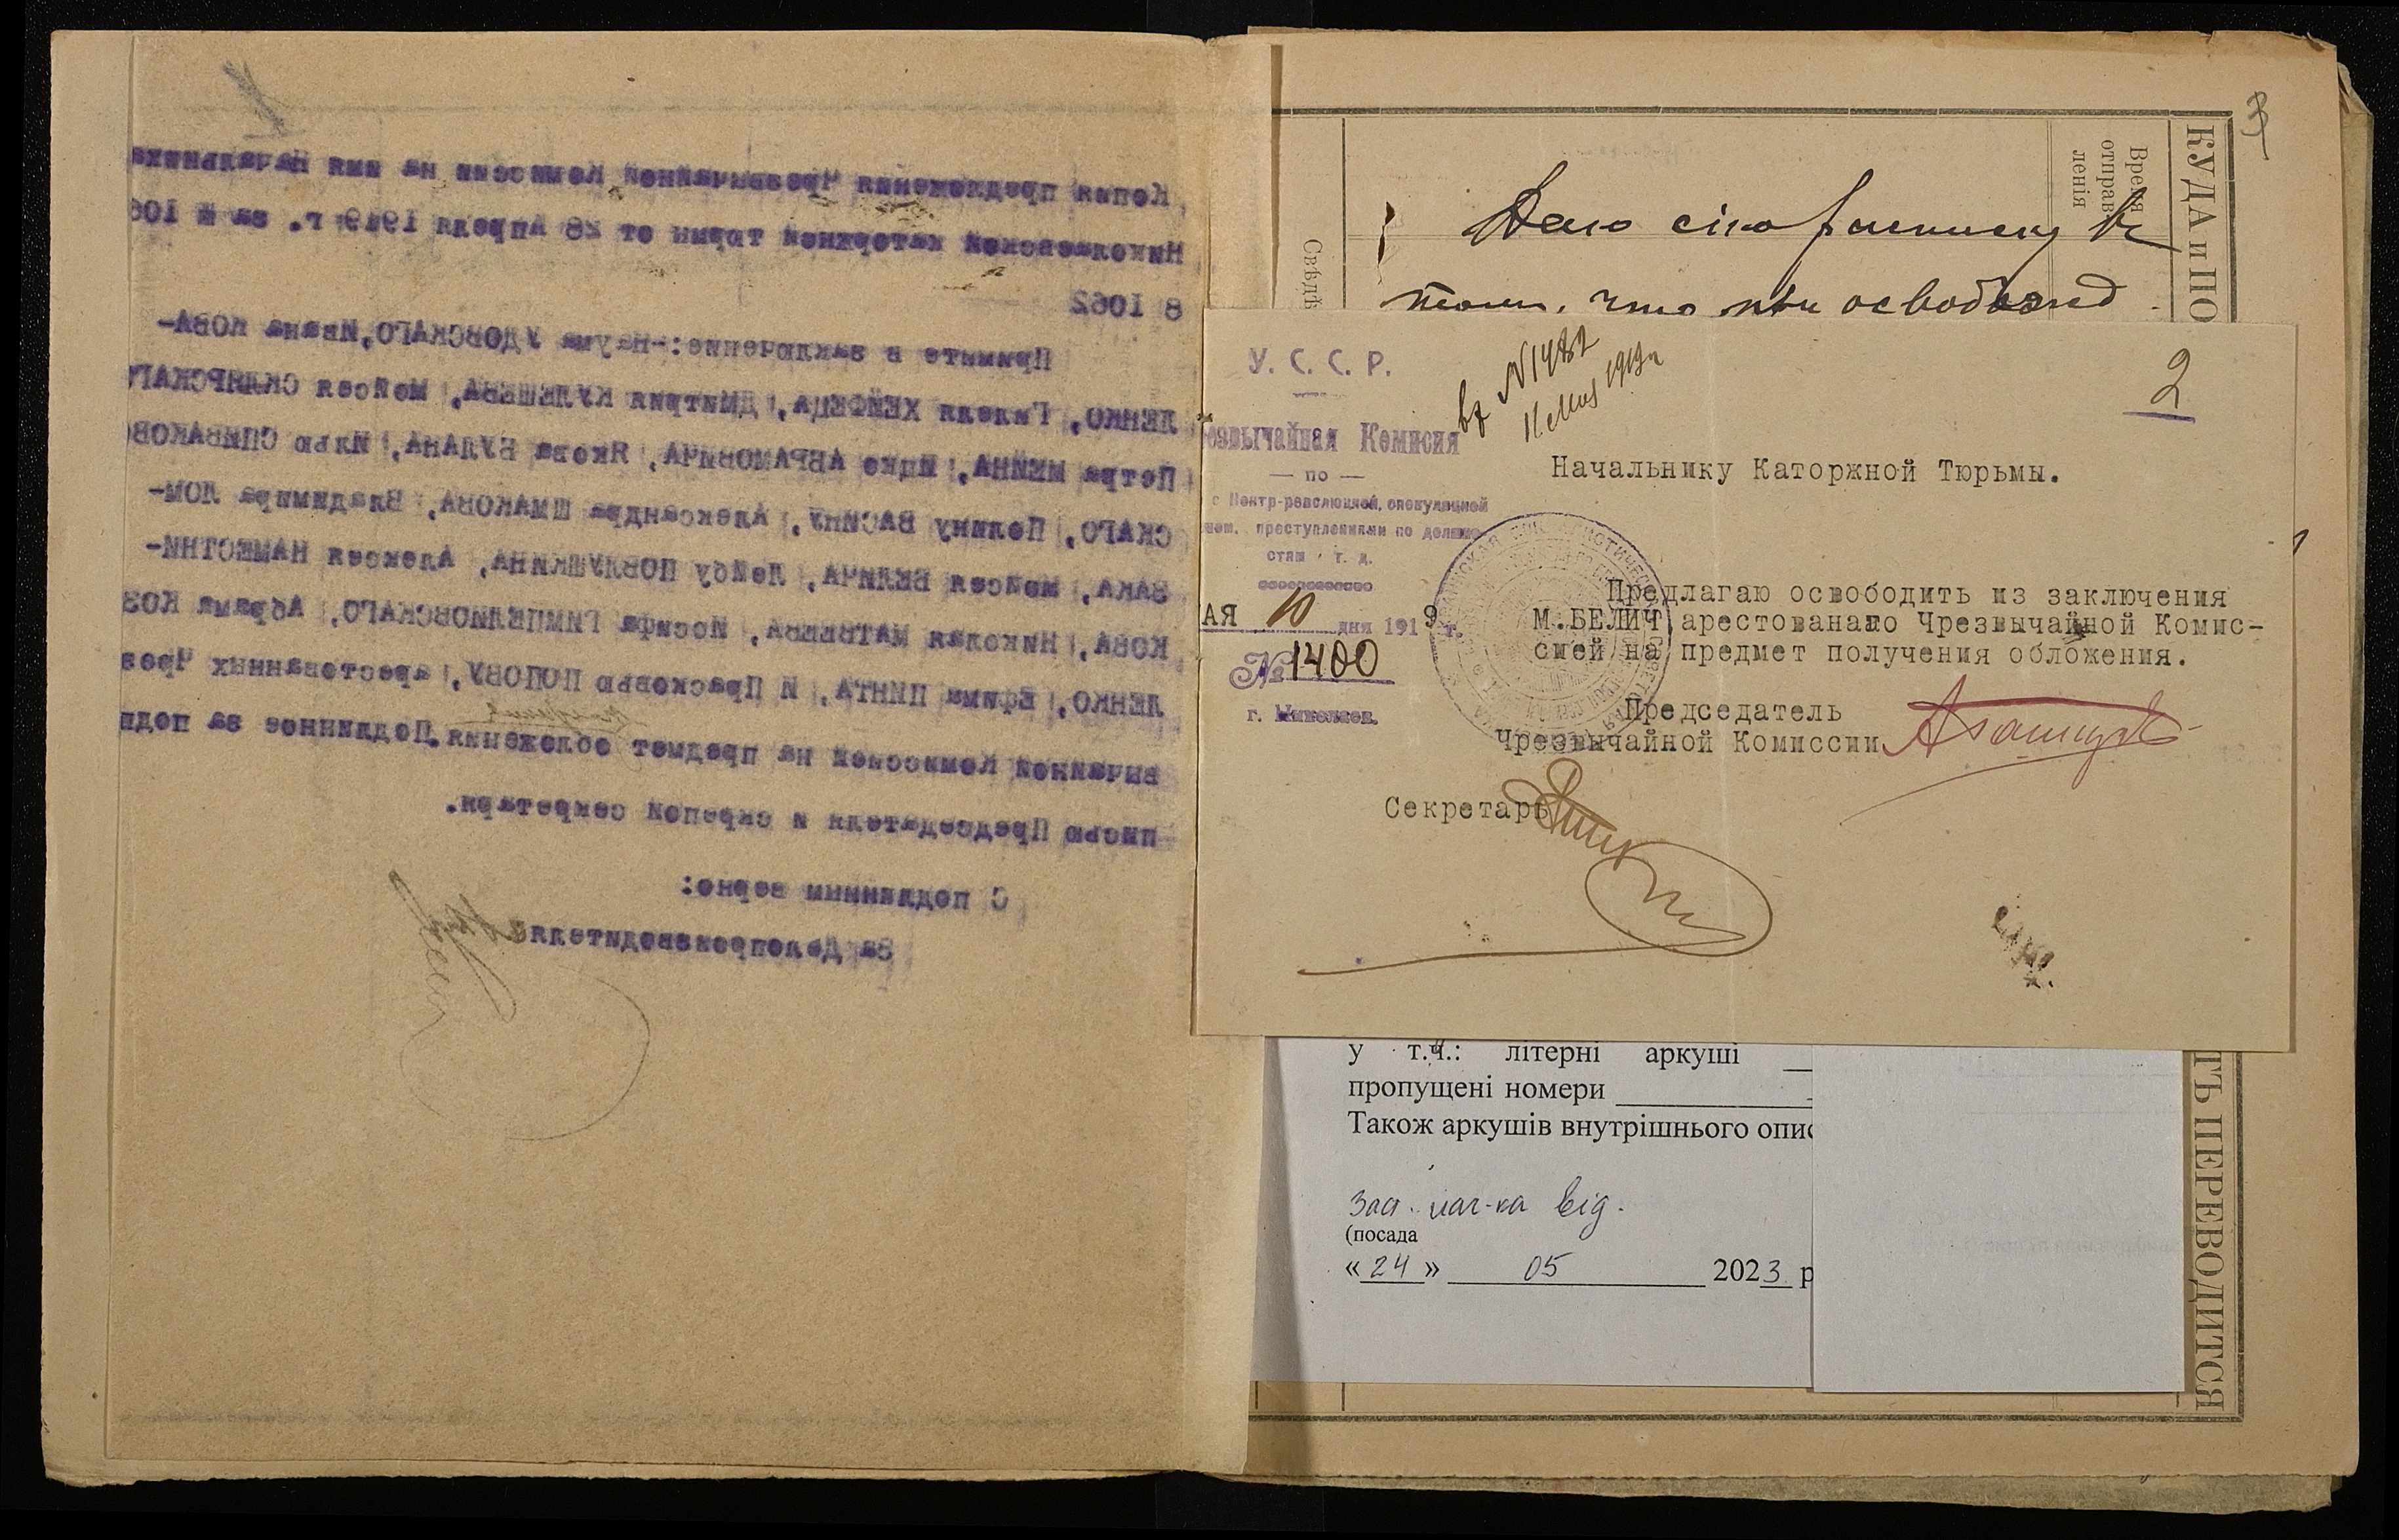 Копия предложения Чрезвычайной Комиссии на имя Начальника
Николаевской каторжной тюрьмы от 28 Апреля 1919 г. за №
8 1062
Примите в заключение:-Наума УДОВСКАГО, Ивана КОВА-
ЛЕНКО, Гилеля ХЕЙФЕЦА, Дмитрия КУЛЕШЕВА, Мойсея СКЛЯРСКАГО
Петра МЕЙНА, Ицко АВРАМОВИЧА, Якова БУЛАНА, Илью СПИВАКОВ
СКАГО, Полину ВАСИНУ, Александра ШМАКОВА, Владимира ЛОМ-
ЗАКА, Мойсея БЕЛИЧА, Лейбу ПОВЛУШКИНА, Алексея НАМЕСТНИ-
КОВА, Николая МАТВЕЕВА, Иосифа ГИМПЕЛИОВСКАГО, Абрама КОЗ
ЛЕНКО, Ефима ПИНТА, И Прасковью ПОПОВУ, арестованных Чрез
вычайной Комиссией на предмет обложения. Подлинное за подп
писью Председателя и скрепой секретаря.
С подлинным верно:
За Делопроизводителя
3
КУДА и ПО
Время
отправ-
ленія
Свѣдѣ
Даю сію расписку в
том, что при освобожд
2
У. С. С. Р.
езвычайная Комисия
— по —
с Контр-революцией, спекуляцией
преступлениями по должно-
стям и т. д.
АЯ 10 дня 1919 г.
№ 1400
г. Николаев.
вх N 1482
11 Мая 1919 г
Начальнику Каторжной Тюрьмы.
Предлагаю освободить из заключения
М.БЕЛИЧ арестованаго Чрезвычайной Комис-
сией на предмет получения обложения.
Председатель
Чрезвычайной Комиссии
Секретарь
у т.ч.: літерні аркуші
пропущені номери
Також аркушів внутрішнього опис
Зас. нач-ка від.
(посада
«24» 05 2023 р
ТЪ ПЕРЕВОДИТСЯ